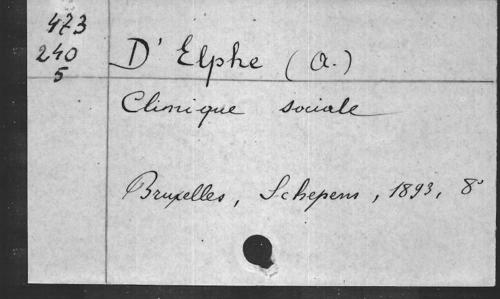 473
240
5
D' Elphe (A.)
Clinique sociale
Bruxelles, Schepens, 1893, 8°